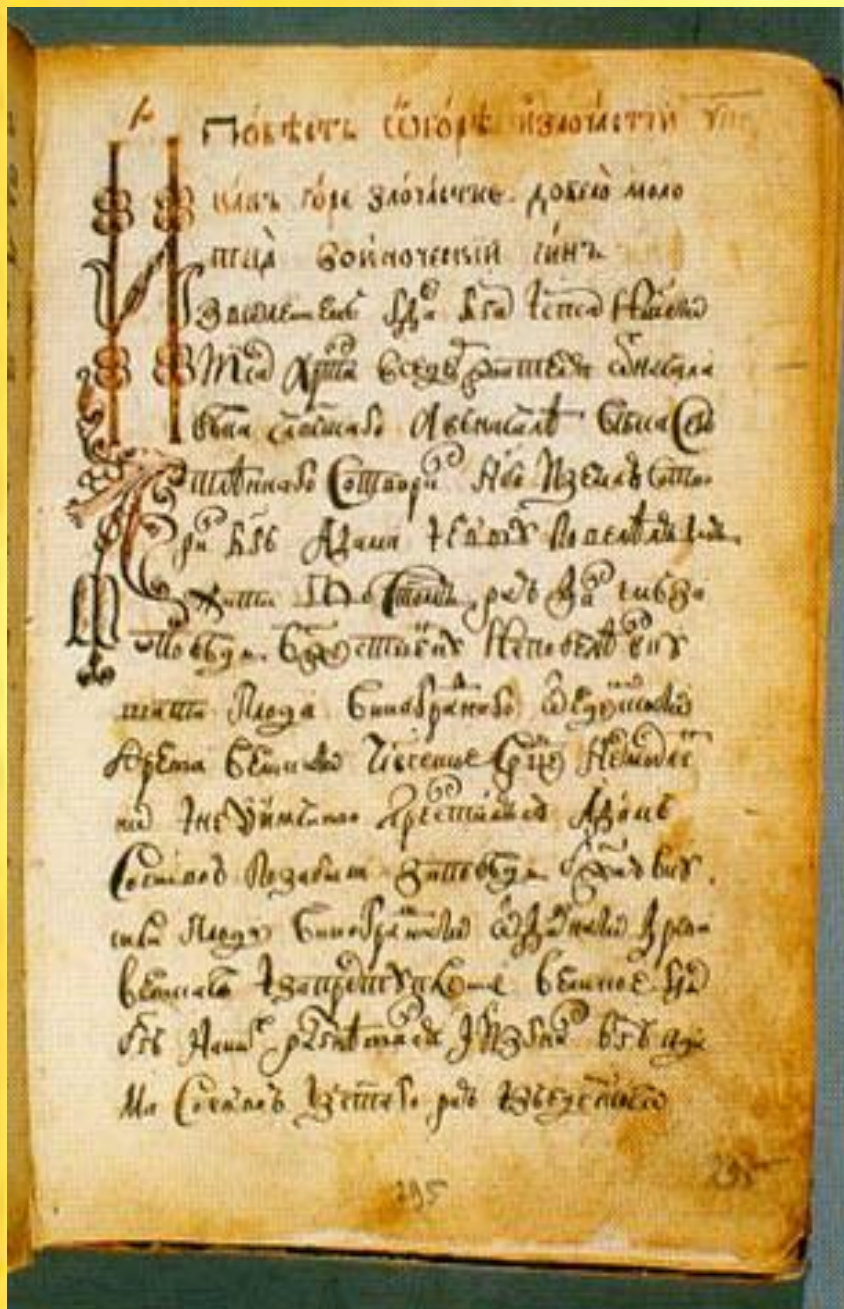 Повѣсть ѡ горѣ и злочастіи
какъ горе злочастие довело моло
тца во иноческій чинъ
Изволениемъ гда бга и спса нашего
иса хрта вседръжителя ѿ начала
вѣка А в началѣ вѣка сего
тлѣннаго сотвори нбо и землю сотво
ри бгъ адама и евву повелѣлъ имъ
жити во стомъ раю да имъ за
повѣдь бжественну не повелѣ вку
шати плода виноградного ѿ едемскаго
древа великаго срце несмыслен
но и неуимчиво прелстился адамъ
со еввою позабыли заповѣдь бжию вку
сили плода винограднаго ѿ дивнаго древа
великаго и за преступление великое гдь
бгъ на нихъ разгнѣвался и изгна бгъ ада
ма со еввою из стаго раю из едемскаго
295